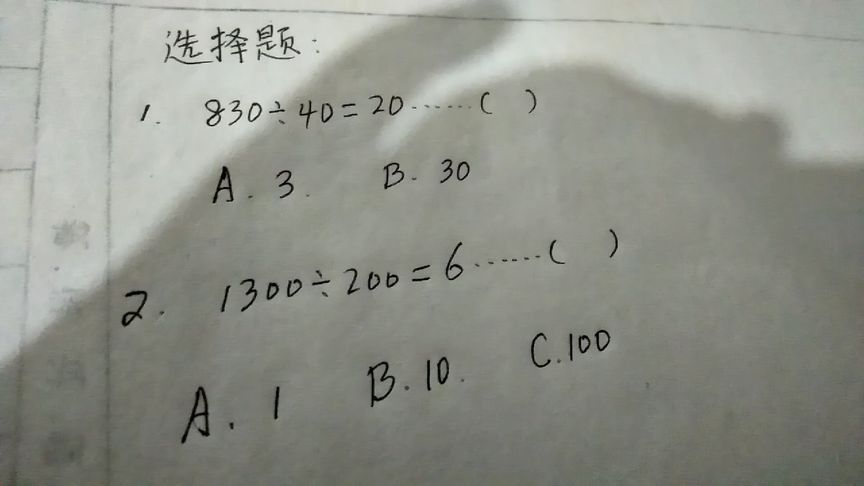 选择题：
1. 830÷40=20……( )
A. 3. B. 30
2. 1300÷200=6……( )
A. 1 B. 10. C. 100